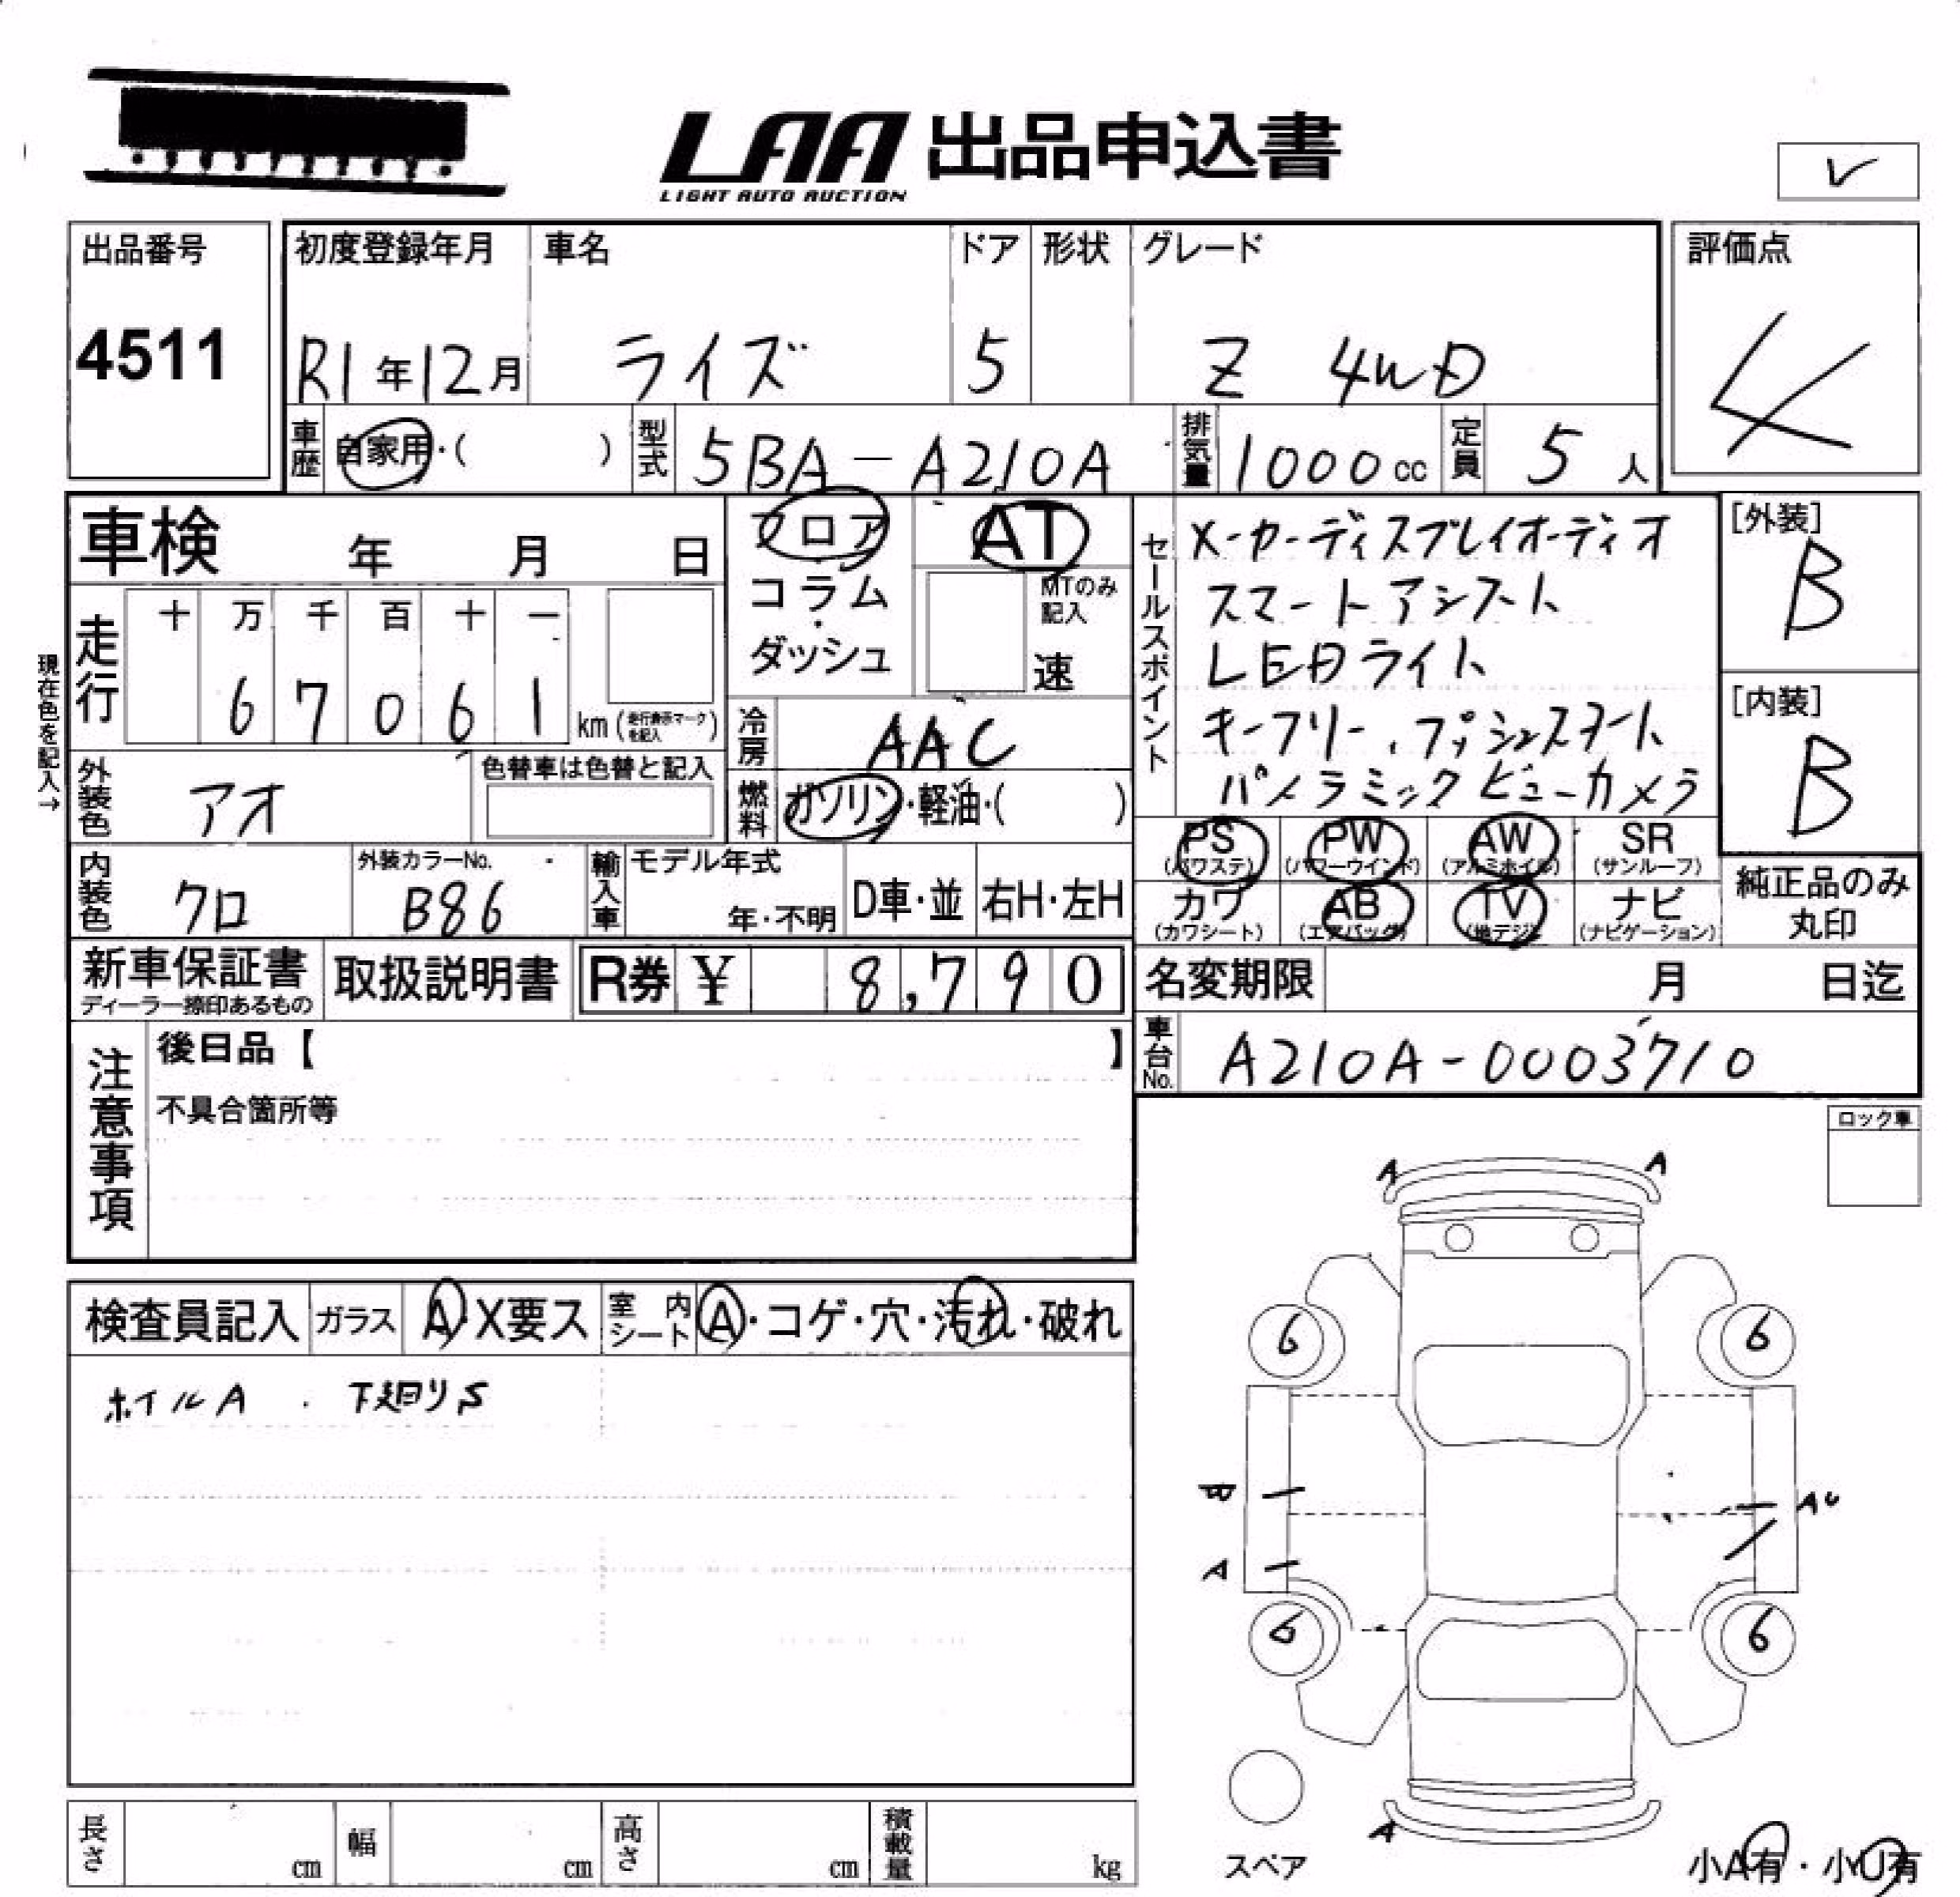 LAA 出品申込書
LIGHT AUTO AUCTION
出品番号
4511
初度登録年月
R1年12月
車名
ライズ
ドア
5
形状
グレード
Z 4WD
評価点
4
車歴 自家用・( )
型式 5BA-A210A
排気量 1000cc
定員 5人
車検 年 月 日
フロア
コラム
・
ダッシュ
AT
MTのみ記入
速
セールスポイント
メーカーディスプレイオーディオ
スマートアシスト
LEDライト
キーフリー、プッシュスタート
パノラミックビューカメラ
[外装]
B
[内装]
B
現在色を記入→
走行
十 万 千 百 十 一
6 7 0 6 1 km (走行表示マークを記入)
冷房 AAC
外装色 アオ
色替車は色替と記入
燃料 ガソリン・軽油・( )
内装色 クロ
外装カラーNo.
B86
輸入車 モデル年式
年・不明
D車・並
右H・左H
PS (パワステ)
PW (パワーウインド)
AW (アルミホイル)
SR (サンルーフ)
カワ (カワシート)
AB (エアバッグ)
TV (地デジ)
ナビ (ナビゲーション)
純正品のみ
丸印
新車保証書
ディーラー捺印あるもの
取扱説明書
R券 ¥ 8,790
名変期限 月 日迄
車台No. A210A-0003710
注意事項
後日品【 】
不具合箇所等
ロック車
検査員記入 ガラス A X要ス 室内シート A・コゲ・穴・汚れ・破れ
ホイルA . 下廻りS
A A
6 6
B
AU
A
6 6
スペア
A
小A有・小U有
長さ cm 幅 cm 高さ cm 積載量 kg